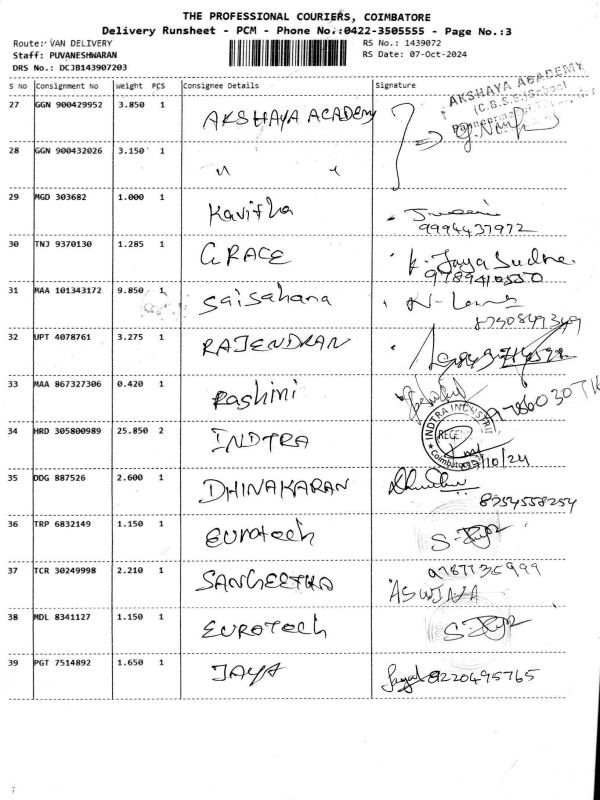 THE PROFESSIONAL COURIERS, COIMBATORE
Delivery Runsheet - PCM - Phone No.:0422-3505555 - Page No.:3
Route: VAN DELIVERY
RS No.: 1439072
Staff: PUVANESHWARAN
RS Date: 07-Oct-2024
DRS No.: DCJB143907203
S No Consignment No Weight PCS Consignee Details Signature
27 GGN 900429952 3.850 1 AKSHAYA ACADEMY AKSHAYA ACADEMY
(C.B.S.E.)School
28 GGN 900432026 3.150 1 " "
29 MGD 303682 1.000 1 Kavitha
9994437972
30 TNJ 9370130 1.285 1 GRACE K. Jaya Sudha
9789410550
31 MAA 101343172 9.850 1 Saisahana
8750849349
32 UPT 4078761 3.275 1 RAJENDRAN
33 MAA 867327306 0.420 1 Rashini
34 HRD 305800989 25.850 2 INDTRA INDTRA INDUSTRI
Coimbatore
/10/24
35 DDG 887526 2.600 1 DHINAKARAN
8754558254
36 TRP 6832149 1.150 1 Eurotech
37 TCR 30249998 2.210 1 SANGEETHA 9787735999
38 MDL 8341127 1.150 1 EUROTech
39 PGT 7514892 1.650 1 JAYA 9220495765